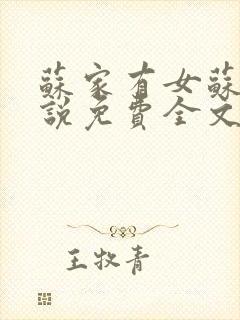 蘇家有女蘇
說免費全文
王牧青